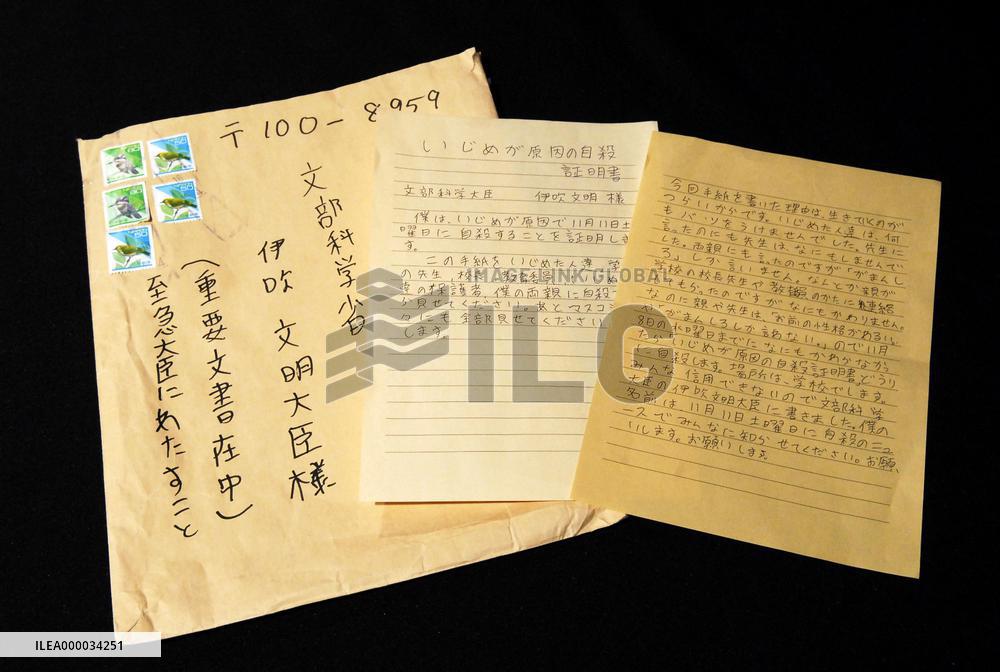 〒100-8959
文部科学省
伊吹 文明大臣様
(重要文書在中)
至急大臣にわたすこと
いじめが原因の自殺
証明書
文部科学大臣 伊吹文明 様
僕は、いじめが原因で11月11日土
曜日に自殺することを証明しま
す。
この手紙をいじめた人達
の先生
僕の両親に自殺
見せてください。あとマスコミ
にも全部見せてください
します。
今回手紙を書いた理由は、生きていくのが
つらいからです。いじめた人達は、何
もバツをうけませんでした。先生に
言ったのにも先生はなにもしませんで
した。両親にも言ったのですが「がまんし
ろ」しか言いません。なんとか親が
学校の校長先生や教
てもらったのですがなにもかわりません。
なのに親や先生は「お前の性格がわるい」
や「がまんしろしか言わない。」ので11月
8日の水曜日までになにもかわらなかっ
たらいじめが原因の自殺証明書どうり
に自殺します。場所は、学校でします。
みんな信用できないので文部科学
大臣の伊吹文明大臣に書きました。僕の
名前は11月11日土曜日に自殺のニュ
ースでみんなに知らせてください。お願
いします。お願いします
IMAGE LINK GLOBAL
ILG
ILEA000034251